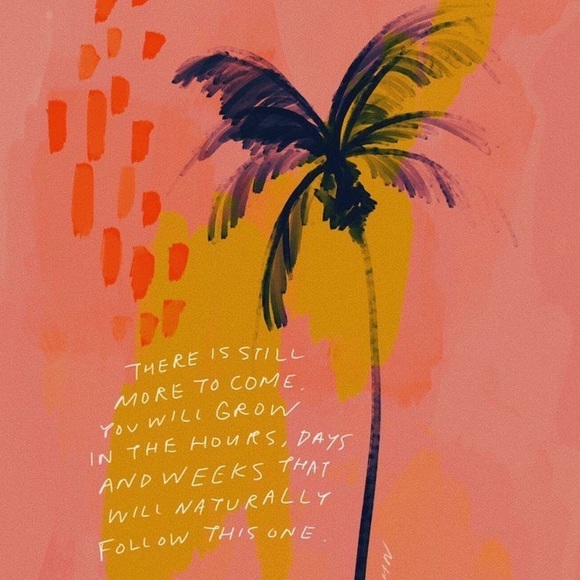 THERE IS STILL
MORE TO COME.
YOU WILL GROW
IN THE HOURS, DAYS
AND WEEKS THAT
WILL NATURALLY
FOLLOW THIS ONE.